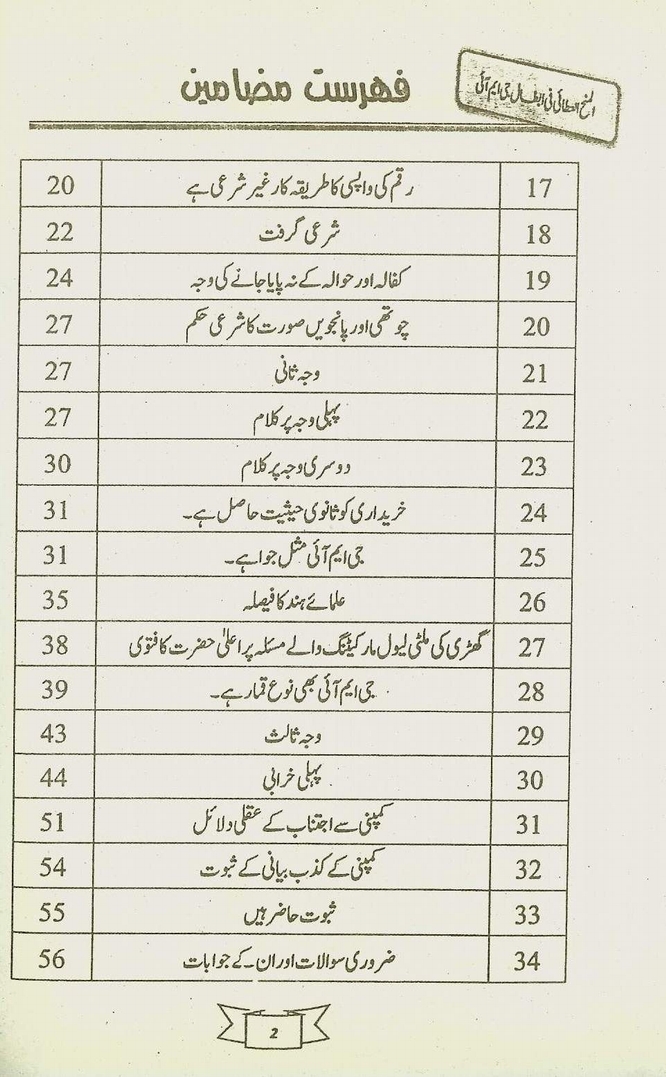 فہرست مضامین
المنح العطائی فی ابطال جی ایم آئی
17 رقم کی واپسی کا طریقہ کار غیر شرعی ہے 20
18 شرعی گرفت 22
19 کفالہ اور حوالہ کے نہ پایا جانے کی وجہ 24
20 چوتھی اور پانچویں صورت کا شرعی حکم 27
21 وجہ ثانی 27
22 پہلی وجہ پر کلام 27
23 دوسری وجہ پر کلام 30
24 خریداری کو ثانوی حیثیت حاصل ہے۔ 31
25 جی ایم آئی مثل جوا ہے۔ 31
26 علمائے ہند کا فیصلہ 35
27 گھڑی کی ملٹی لیول مارکیٹنگ والے مسئلہ پر اعلیٰ حضرت کا فتوی 38
28 جی ایم آئی بھی نوع قمار ہے۔ 39
29 وجہ ثالث 43
30 پہلی خرابی 44
31 کمپنی سے اجتناب کے عقلی دلائل 51
32 کمپنی کے کذب بیانی کے ثبوت 54
33 ثبوت حاضر ہیں 55
34 ضروری سوالات اور ان کے جوابات 56
2